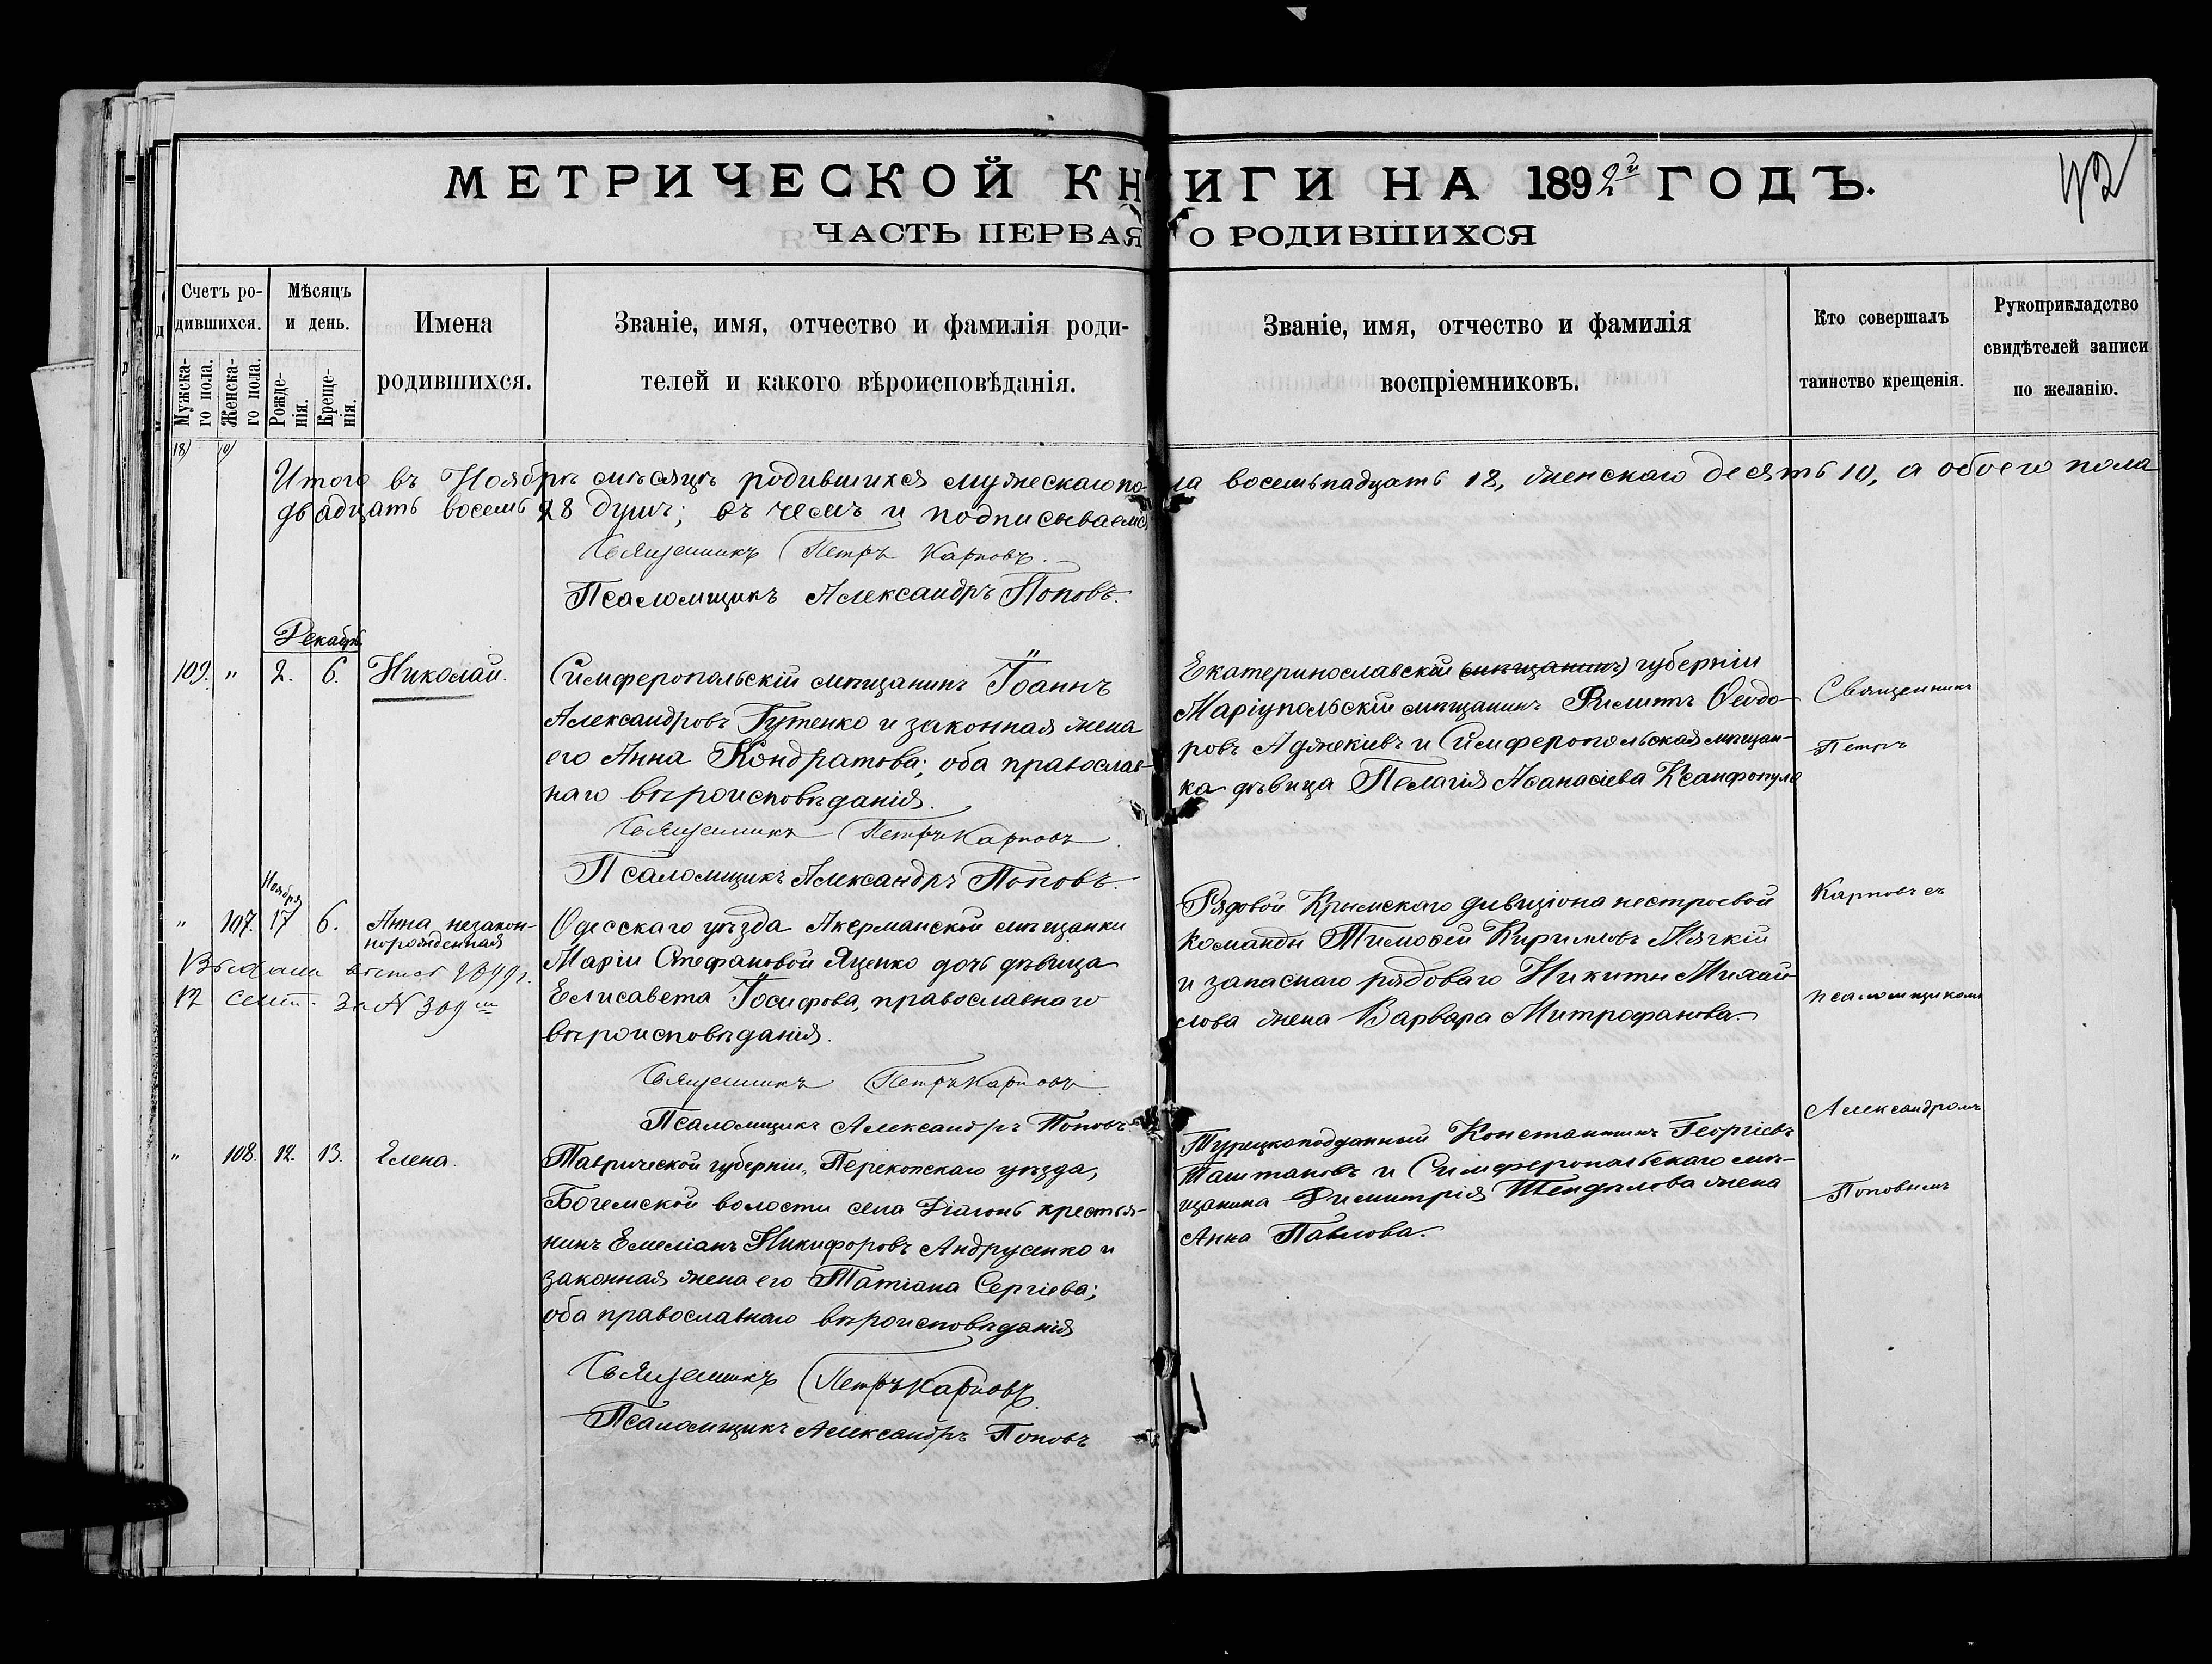 МЕТРИЧЕСКОЙ КНИГИ НА 1892й ГОДЪ.
42
ЧАСТЬ ПЕРВАЯ О РОДИВШИХСЯ
Счетъ ро-
дившихся.
Мужска-
го пола.
Женска-
го пола.
Мѣсяцъ
и день.
Рожде-
нія.
Креще-
нія.
Имена
родившихся.
Званіе, имя, отчество и фамилія роди-
телей и какого вѣроисповѣданія.
Званіе, имя, отчество и фамилія
воспріемниковъ.
Кто совершалъ
таинство крещенія.
Рукоприкладство
свидѣтелей записи
по желанію.
18) 10)
Итого въ Ноябрѣ мѣсяцѣ родившихся мужескаго пола восемьнадцать 18, женскаго десять 10, а обоего пола
двадцать восемь 28 душъ; въ чемъ и подписываемся
Священникъ Петръ Карповъ.
Псаломщикъ Александръ Поповъ.
Декабрь
109. " 2. 6. Николай.
Симферопольскій мѣщанинъ Іоаннъ
Александровъ Гутенко и законная жена
его Анна Кондратова; оба православ-
наго вѣроисповѣданія.
Священникъ Петръ Карповъ.
Псаломщикъ Александръ Поповъ.
Екатеринославской (мѣщанинъ) губерніи
Маріупольскій мѣщанинъ Филиппъ Ѳеодо-
ровъ Аджекіевъ и Симферопольская мѣщан-
ка дѣвица Пелагія Аѳанасіева Ксанфопуло
Священникъ
Петръ
Карповъ съ
псаломщикомъ
Александромъ
Поповымъ
Ноября
" 107. 17 6. Анна незакон-
норожденная
12 Сент. за № 309
Одесскаго уѣзда Акерманской мѣщанки
Маріи Стефановой Яценко дочь дѣвица
Елисавета Іосифова, православнаго
вѣроисповѣданія.
Священникъ Петръ Карповъ
Псаломщикъ Александръ Поповъ.
Рядовой Крымскаго дивизіона нестроевой
команды Тимоѳей Кирилловъ Мягкій
и запаснаго рядоваго Никиты Михай-
лова жена Варвара Митрофанова.
" 108. 12. 13. Елена.
Таврической губерніи, Перекопскаго уѣзда,
Богемской волости села крестья-
нинъ Емеліанъ Никифоровъ Андрусенко и
законная жена его Татіана Сергіева;
оба православнаго вѣроисповѣданія
Священникъ Петръ Карповъ.
Псаломщикъ Александръ Поповъ
Турецкоподданный Константинъ Георгіевъ
Таштановъ и Симферопольскаго мѣ-
щанина Димитрія жена
Анна Павлова.